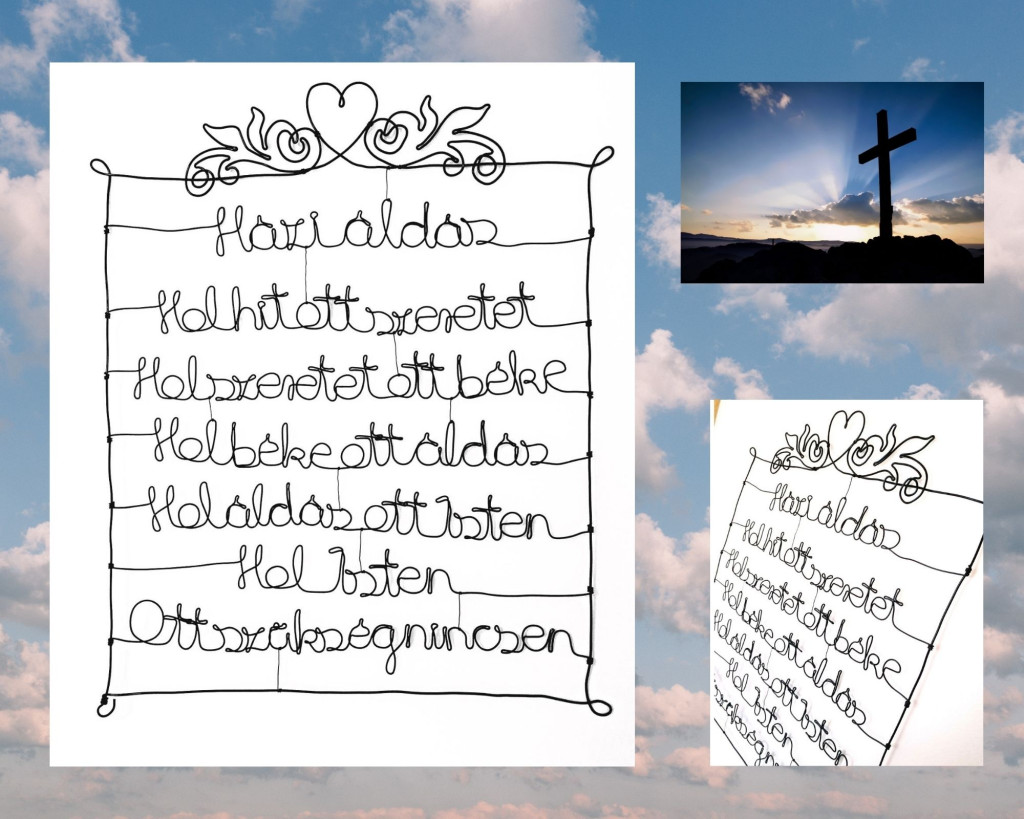 Házi áldás
Hol hit ott szeretet
Hol szeretet ott béke
Hol béke ott áldás
Hol áldás ott Isten
Hol Isten
Ott szükség nincsen
Házi áldás
Hol hit ott szeretet
Hol szeretet ott béke
Hol béke ott áldás
Hol áldás ott Isten
Hol Isten